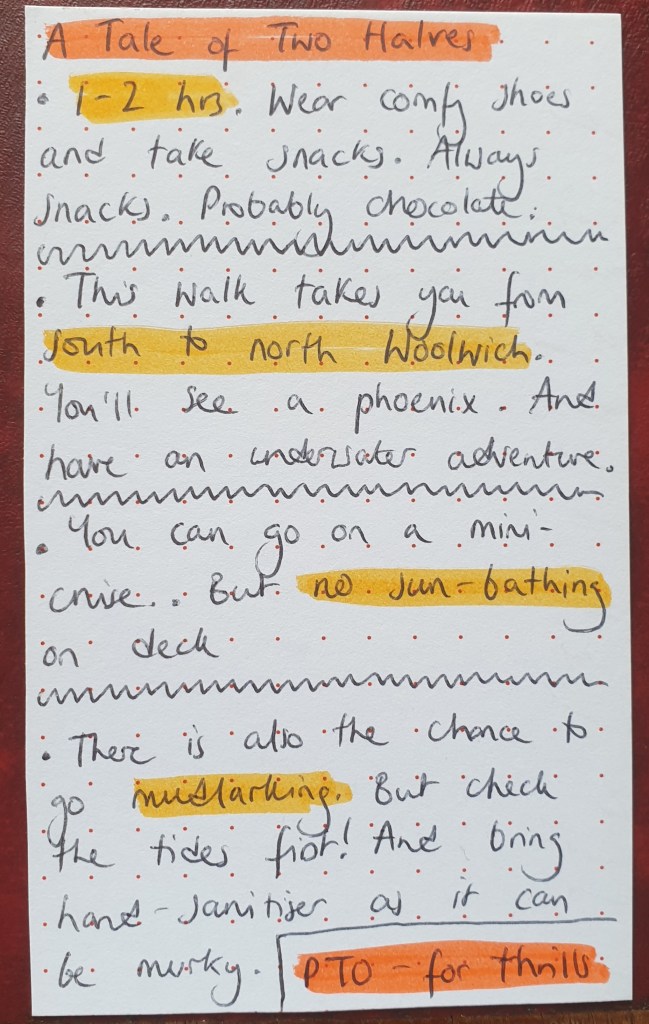 A Tale of Two Halves
• 1-2 hrs. Wear comfy shoes
and take snacks. Always
snacks. Probably chocolate.
• This walk takes you from
south to north Woolwich.
You'll see a phoenix. And
have an underwater adventure.
• You can go on a mini-
cruise.. But no sun-bathing
on deck
• There is also the chance to
go mudlarking. But check
the tides first! And bring
hand-sanitiser as it can
be murky. PTO - for thrills